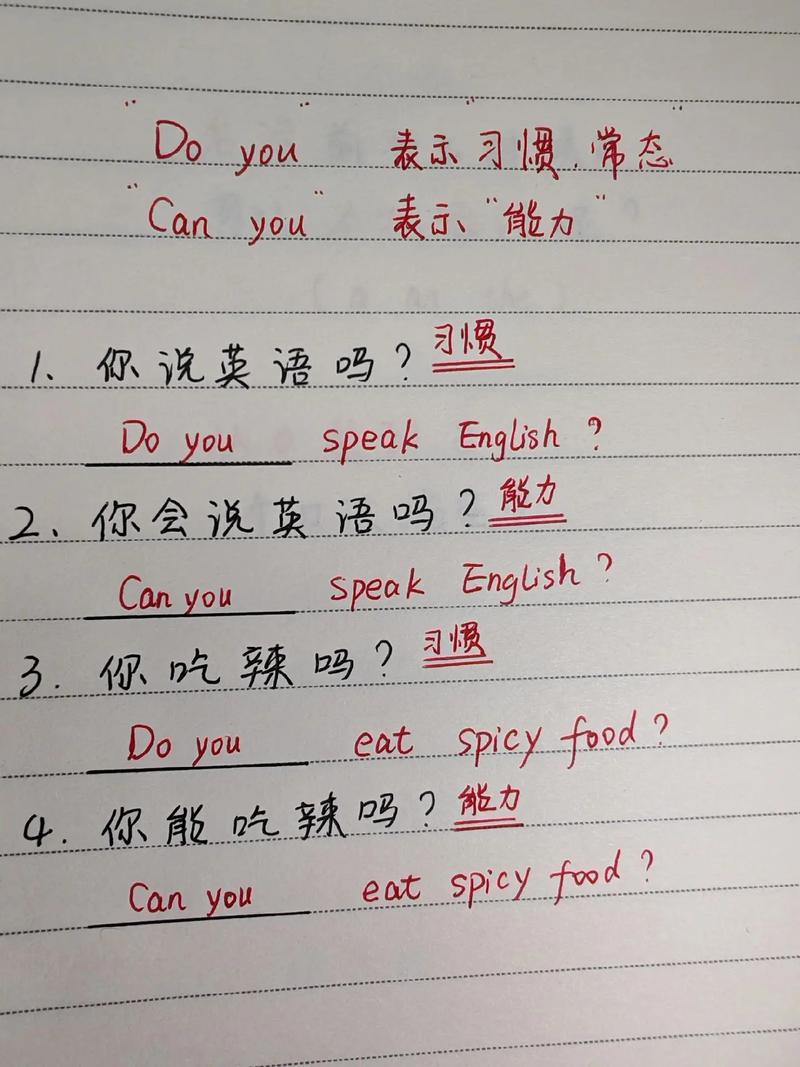 "Do you" 表示"习惯、常态"
"Can you" 表示"能力"
1. 你说英语吗？习惯
Do you speak English ?
2. 你会说英语吗？能力
Can you speak English ?
3. 你吃辣吗？习惯
Do you eat spicy food ?
4. 你能吃辣吗？能力
Can you eat spicy food ?